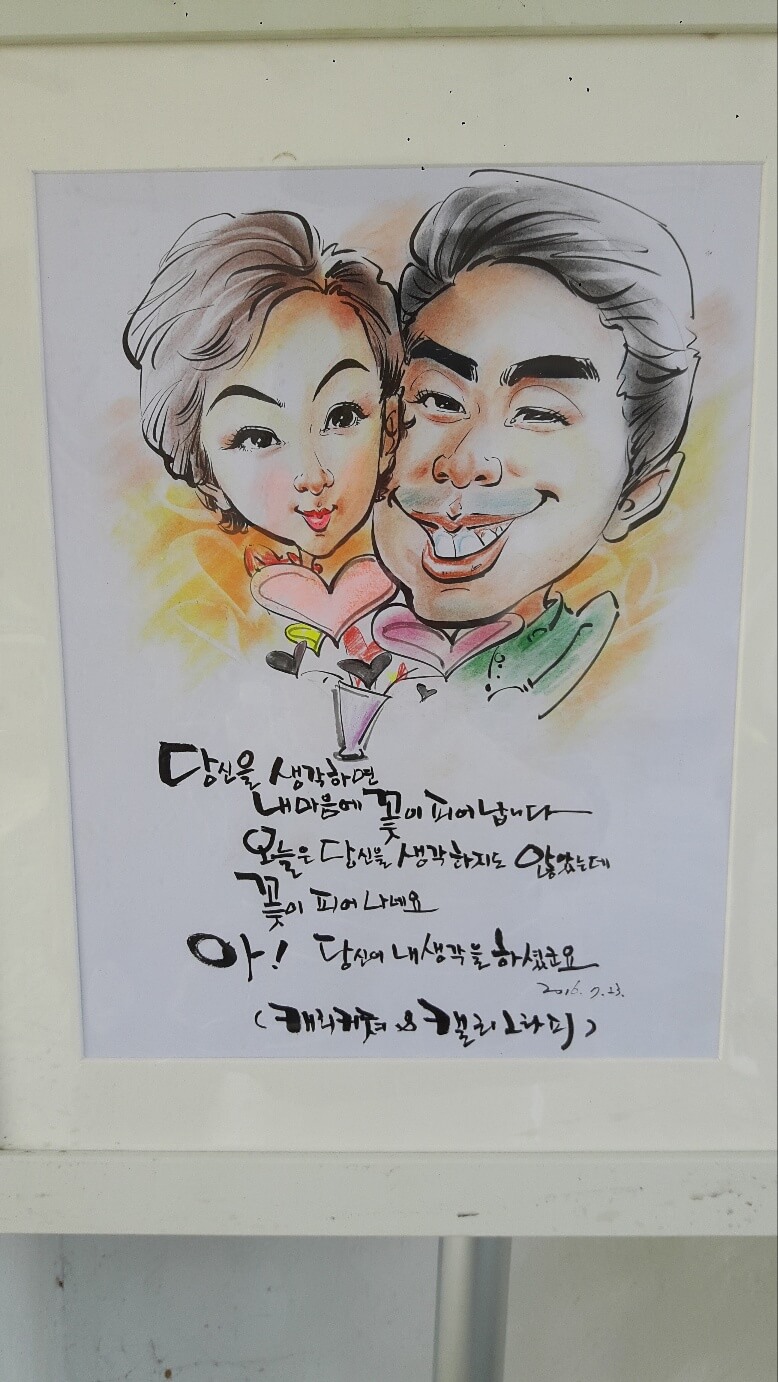 당신을 생각하면
내 마음에 꽃이 피어납니다
오늘은 당신을 생각하지도 않았는데
꽃이 피어나네요
아! 당신이 내생각을 하셨군요
2016. 7. 23.
(캐리커쳐 & 캘리그라피)